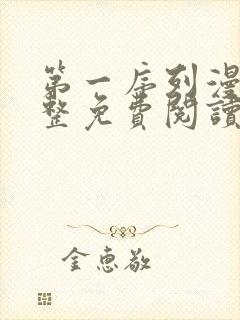 第一序列漫
整免費閱讀
金惠敬